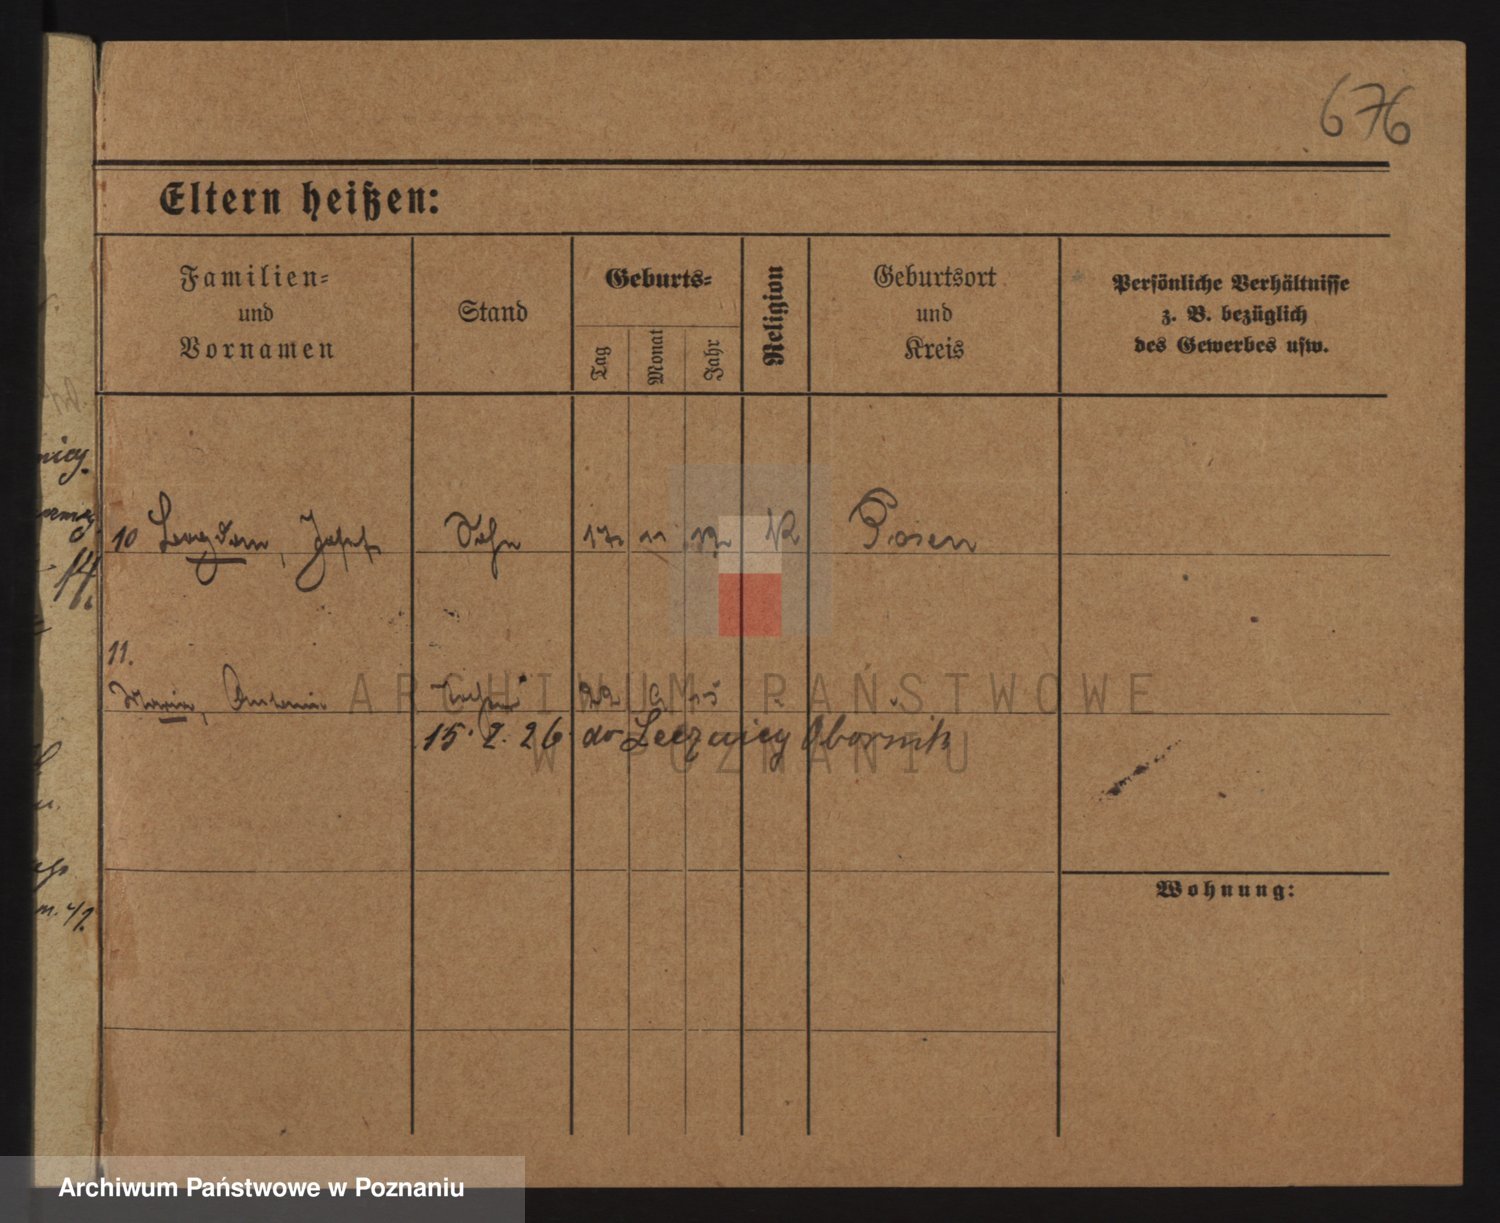 676
Eltern heißen:
Familien-
und
Vornamen
Stand
Geburts-
Tag
Monat
Jahr
Religion
Geburtsort
und
Kreis
Persönliche Verhältnisse
z. B. bezüglich
des Gewerbes usw.
10 Bogdan, Josef Sohn 17. 11 K Posen
11.
Maria, Antonie Tochter 22
15. 2. 26 do Lecznicy Obornik
Wohnung:
ARCHIWUM PAŃSTWOWE
W POZNANIU
Archiwum Państwowe w Poznaniu